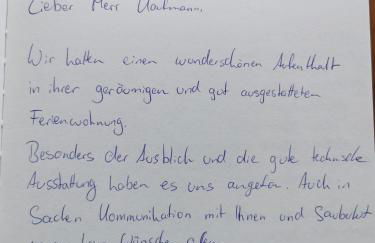 Lieber Herr
Wir hatten einen wunderschönen Aufenthalt
in ihrer geräumigen und gut ausgestatteten
Ferienwohnung.
Besonders der Ausblich und die gute technische
Ausstattung haben es uns angetan. Auch in
Sachen Kommunikation mit Ihnen und Sauberkeit
Wünsche offen